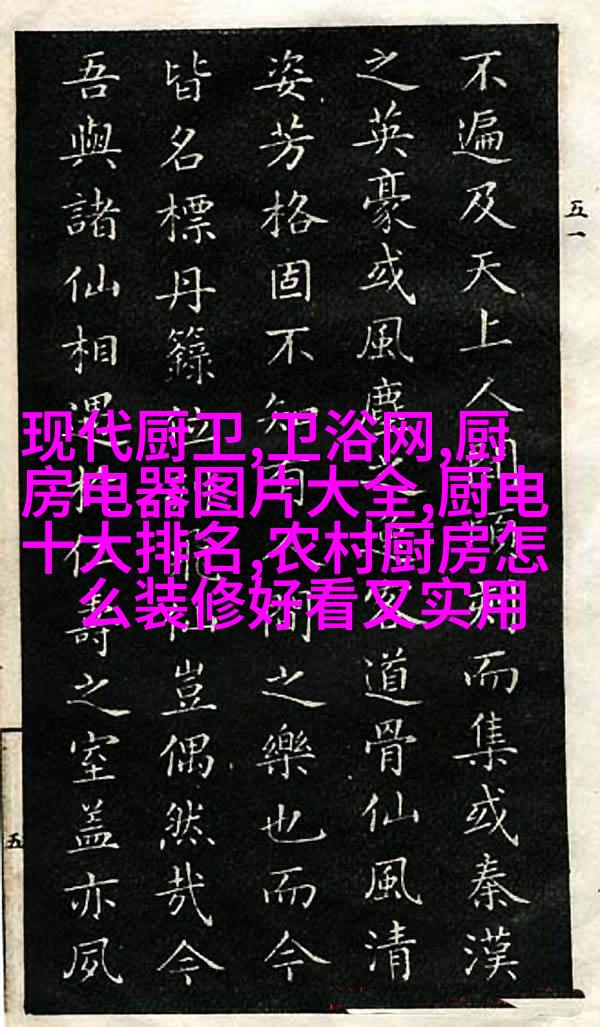 不遍及天上人間頃刻而集或秦漢
之英豪或風塵之客道骨仙風清
姿芳格固不知而人間之樂也而今
皆名標丹籙仙豈偶然哉今
吾與諸仙相遇於仁壽之室蓋亦夙
五一
五
现代厨卫,卫浴网,厨
房电器图片大全,厨电
十大排名,农村厨房怎
么装修好看又实用